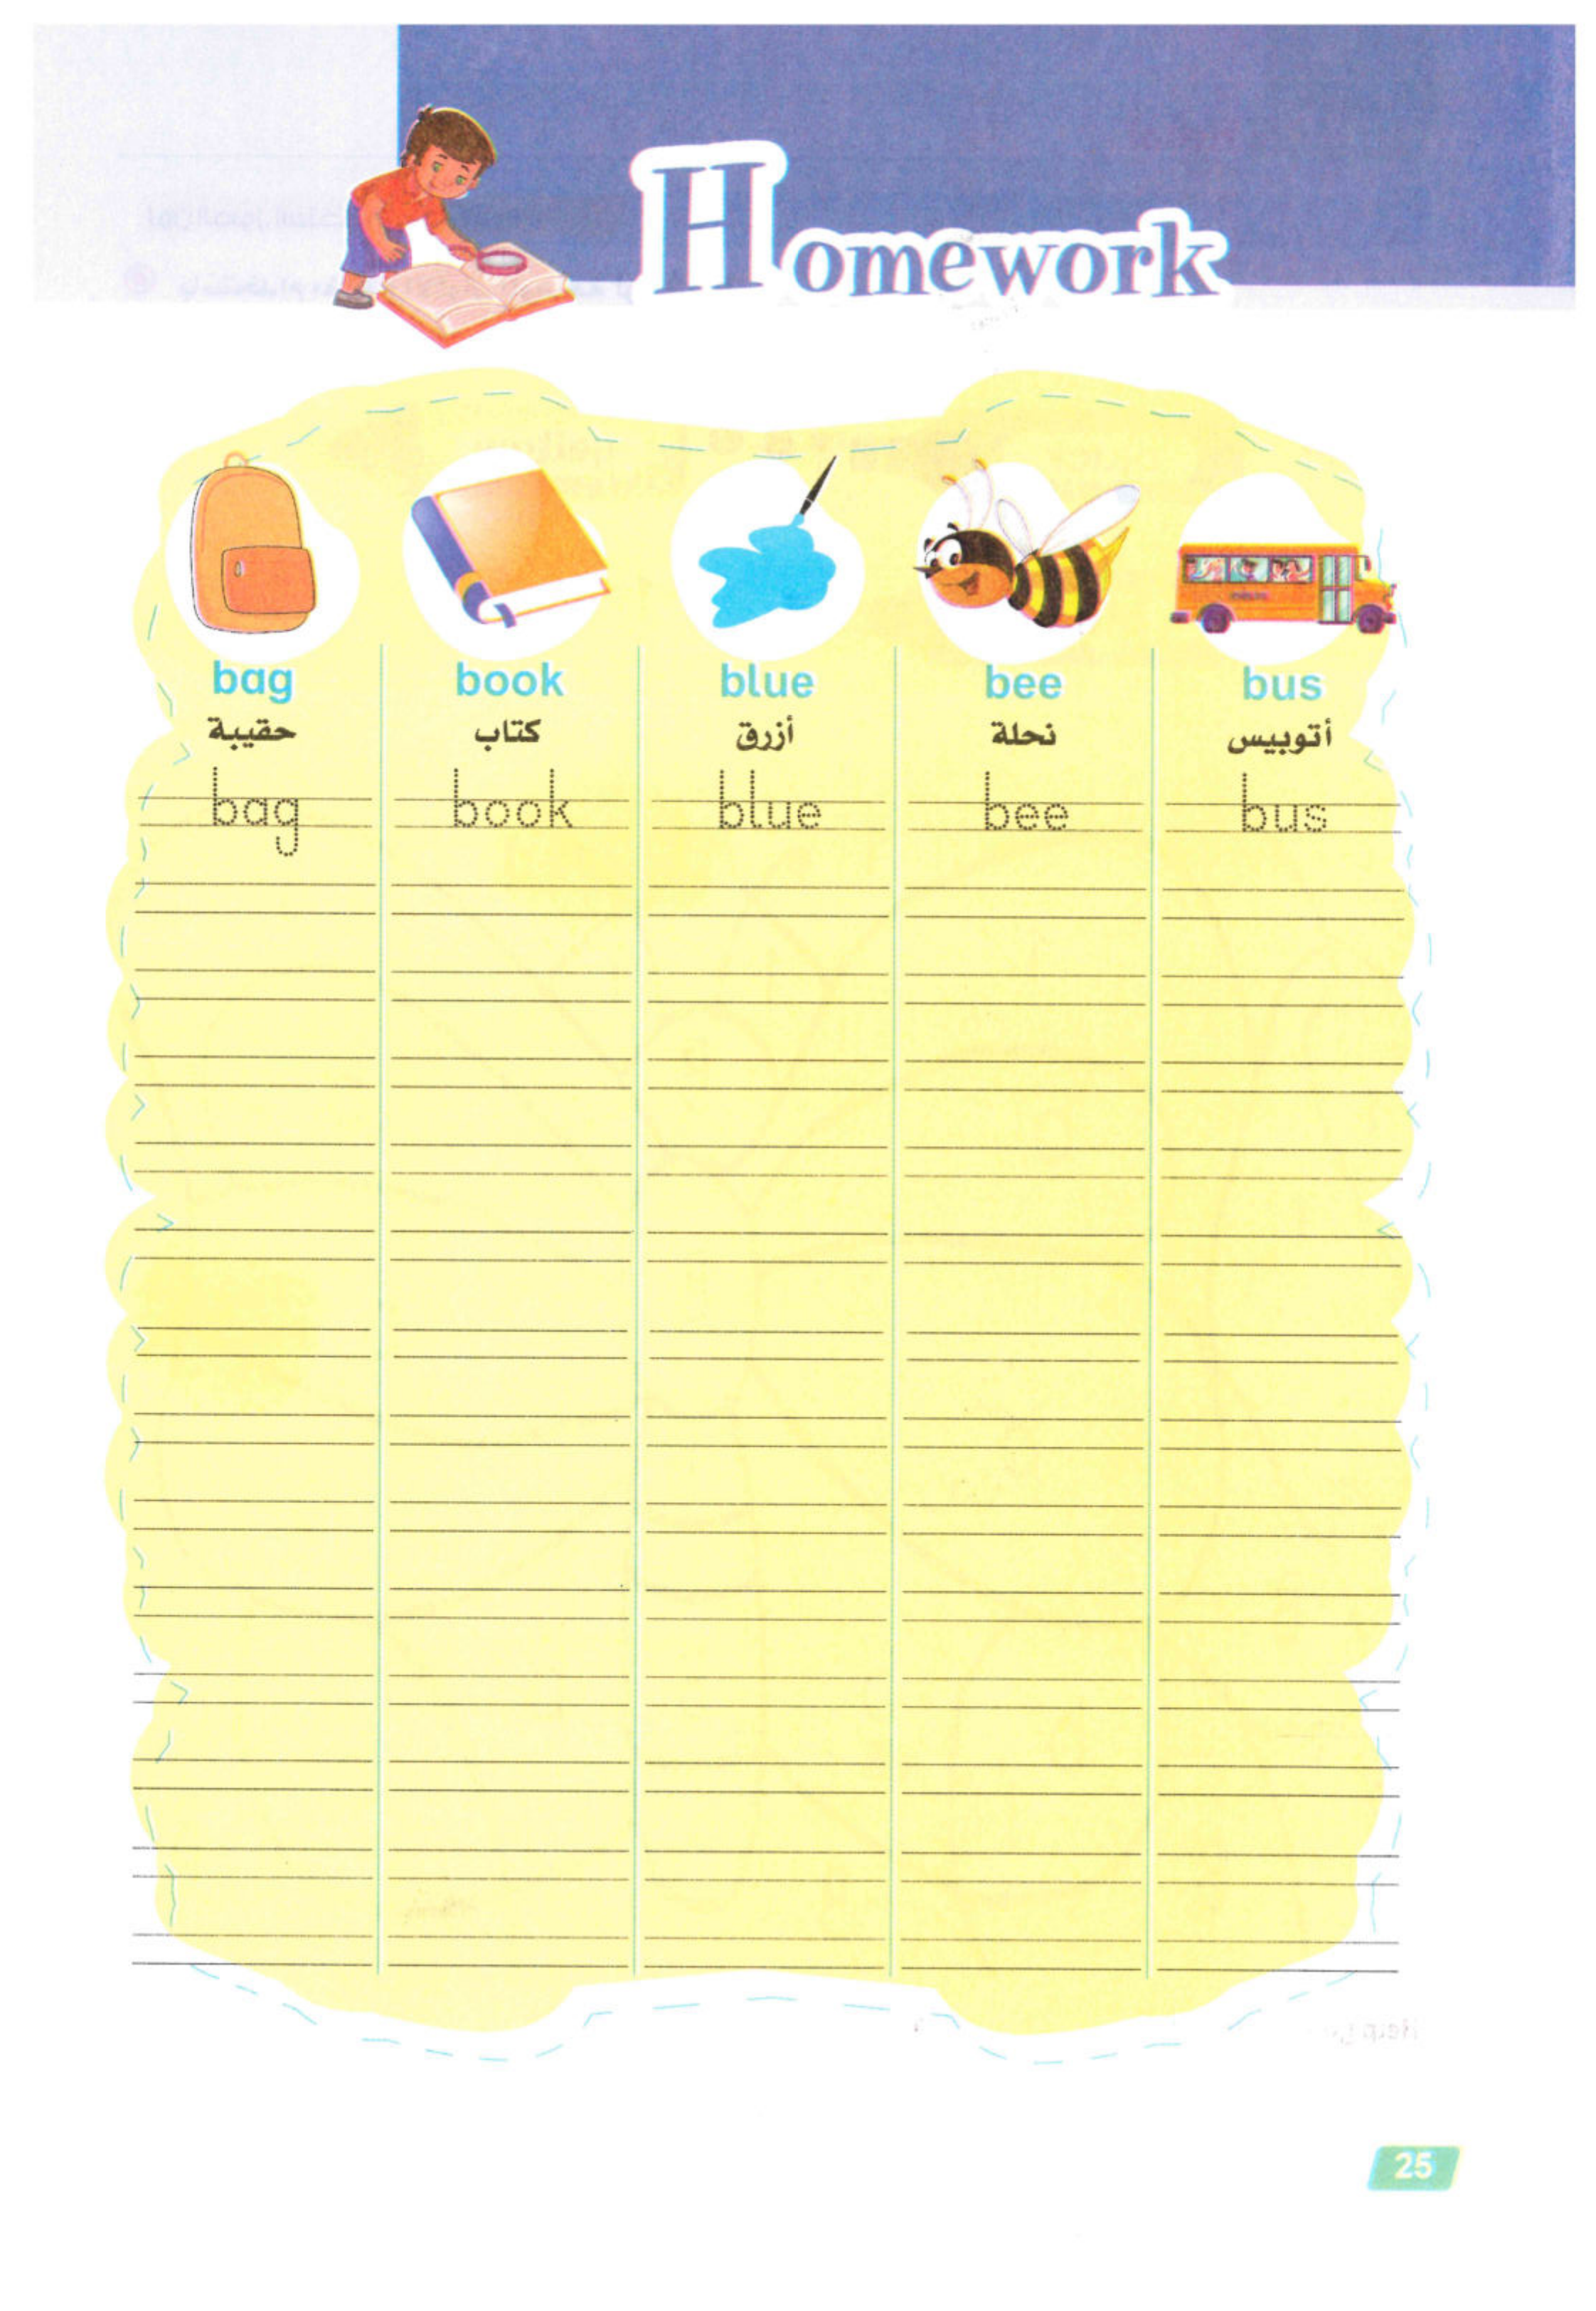 Homework
bag book blue bee bus
حقيبة كتاب أزرق نحلة أتوبيس
bag book blue bee bus
25